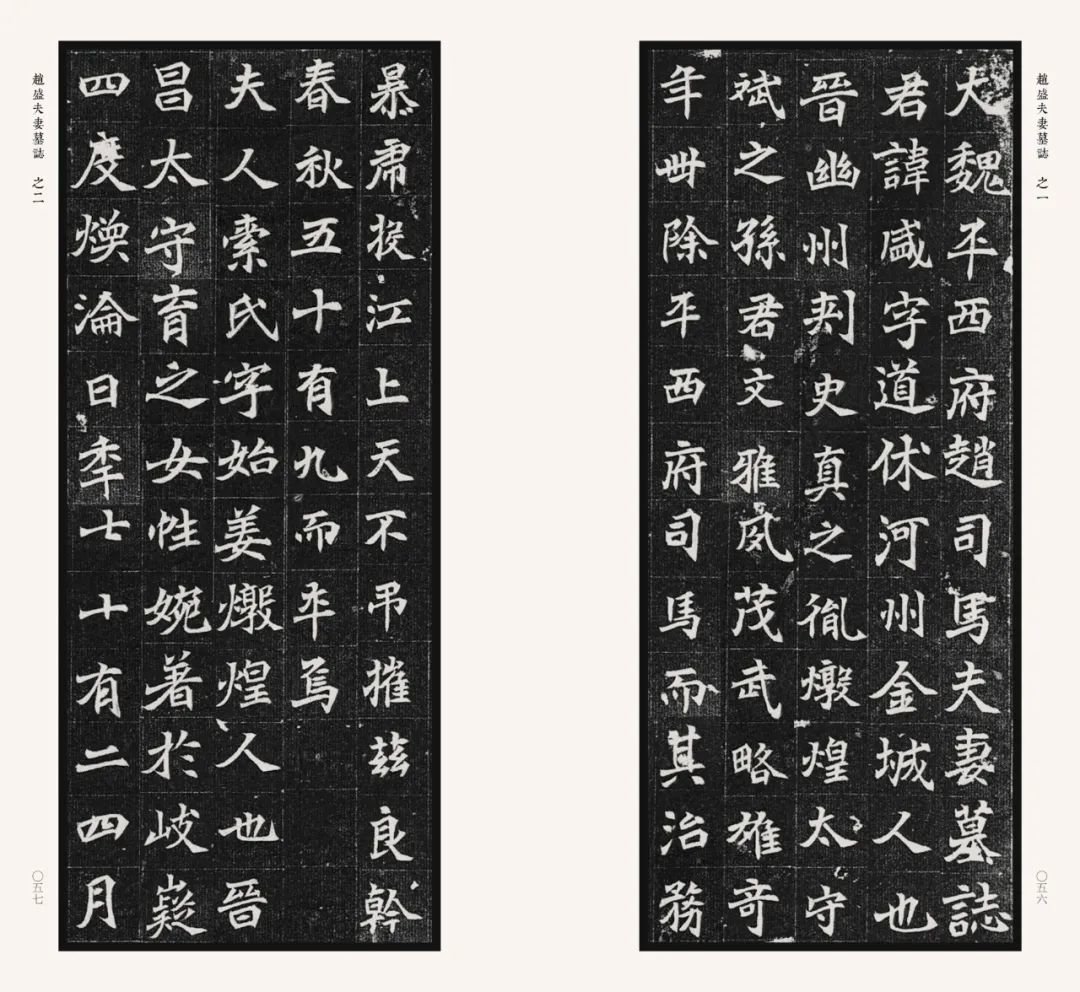 趙盛夫妻墓誌 之一
大魏平西府趙司馬夫妻墓誌
君諱盛字道休河州金城人也
晉幽州刺史真之胤燉煌太守
斌之孫君文雅夙茂武略雄奇
年卌除平西府司馬而其治務
〇五六
暴虎投江上天不弔摧茲良幹
春秋五十有九而卒焉
夫人索氏字始姜燉煌人也晉
昌太守育之女性婉著於岐嶷
四度煥淪日年七十有二四月
趙盛夫妻墓誌 之二
〇五七